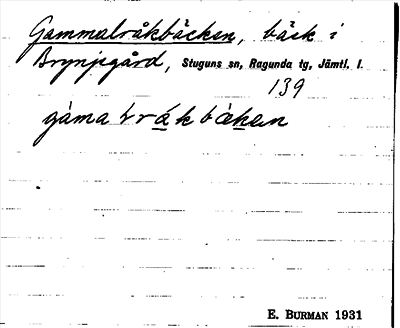 Gammalråkbäcken, bäck i
Brynjegård, Stuguns sn, Ragunda tg, Jämtl. l.
139
E. BURMAN 1931